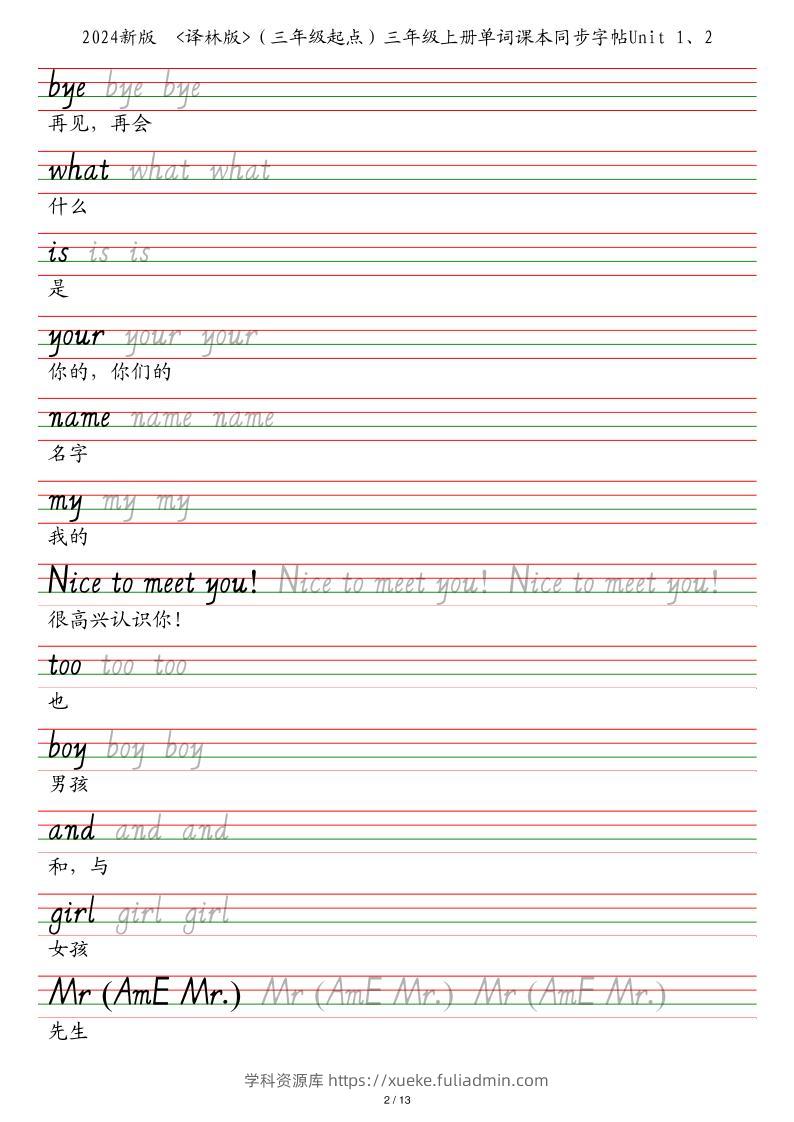 2024新版 <译林版>(三年级起点)三年级上册单词课本同步字帖Unit 1、2
bye bye bye
再见，再会
what what what
什么
is is is
是
your your your
你的，你们的
name name name
名字
my my my
我的
Nice to meet you! Nice to meet you! Nice to meet you!
很高兴认识你！
too too too
也
boy boy boy
男孩
and and and
和，与
girl girl girl
女孩
Mr (AmE Mr.) Mr (AmE Mr.) Mr (AmE Mr.)
先生
学科资源库 https://xueke.fuliadmin.com
2 / 13